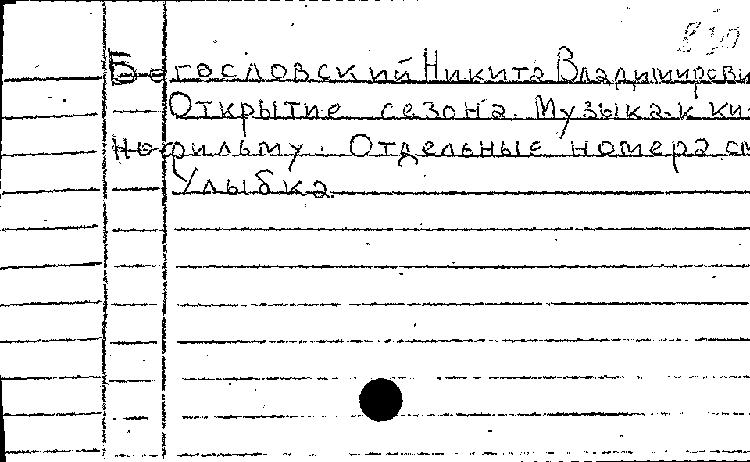 Богословский Никита Владимирови
Открытие сезона. Музыка к ки-
нофильму. Отдельные номера см
Улыбка.